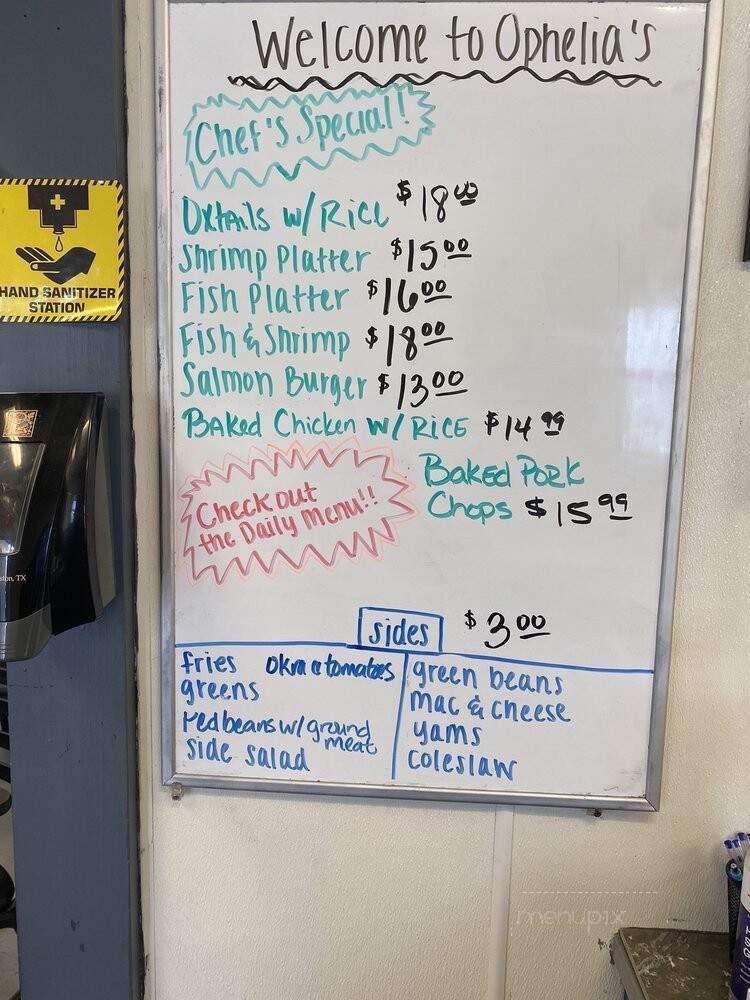 Welcome to Ophelia's
Chef's Special!
Oxtails w/ Rice $18.00
Shrimp Platter $15.00
Fish Platter $16.00
Fish & Shrimp $18.00
Salmon Burger $13.00
Baked Chicken w/ Rice $14.99
Baked Pork
Chops $15.99
Check out
the Daily Menu!!
sides $3.00
fries okra & tomatoes
greens
red beans w/ ground
meat
side salad
green beans
mac & cheese
yams
coleslaw
HAND SANITIZER
STATION
TX
menupix